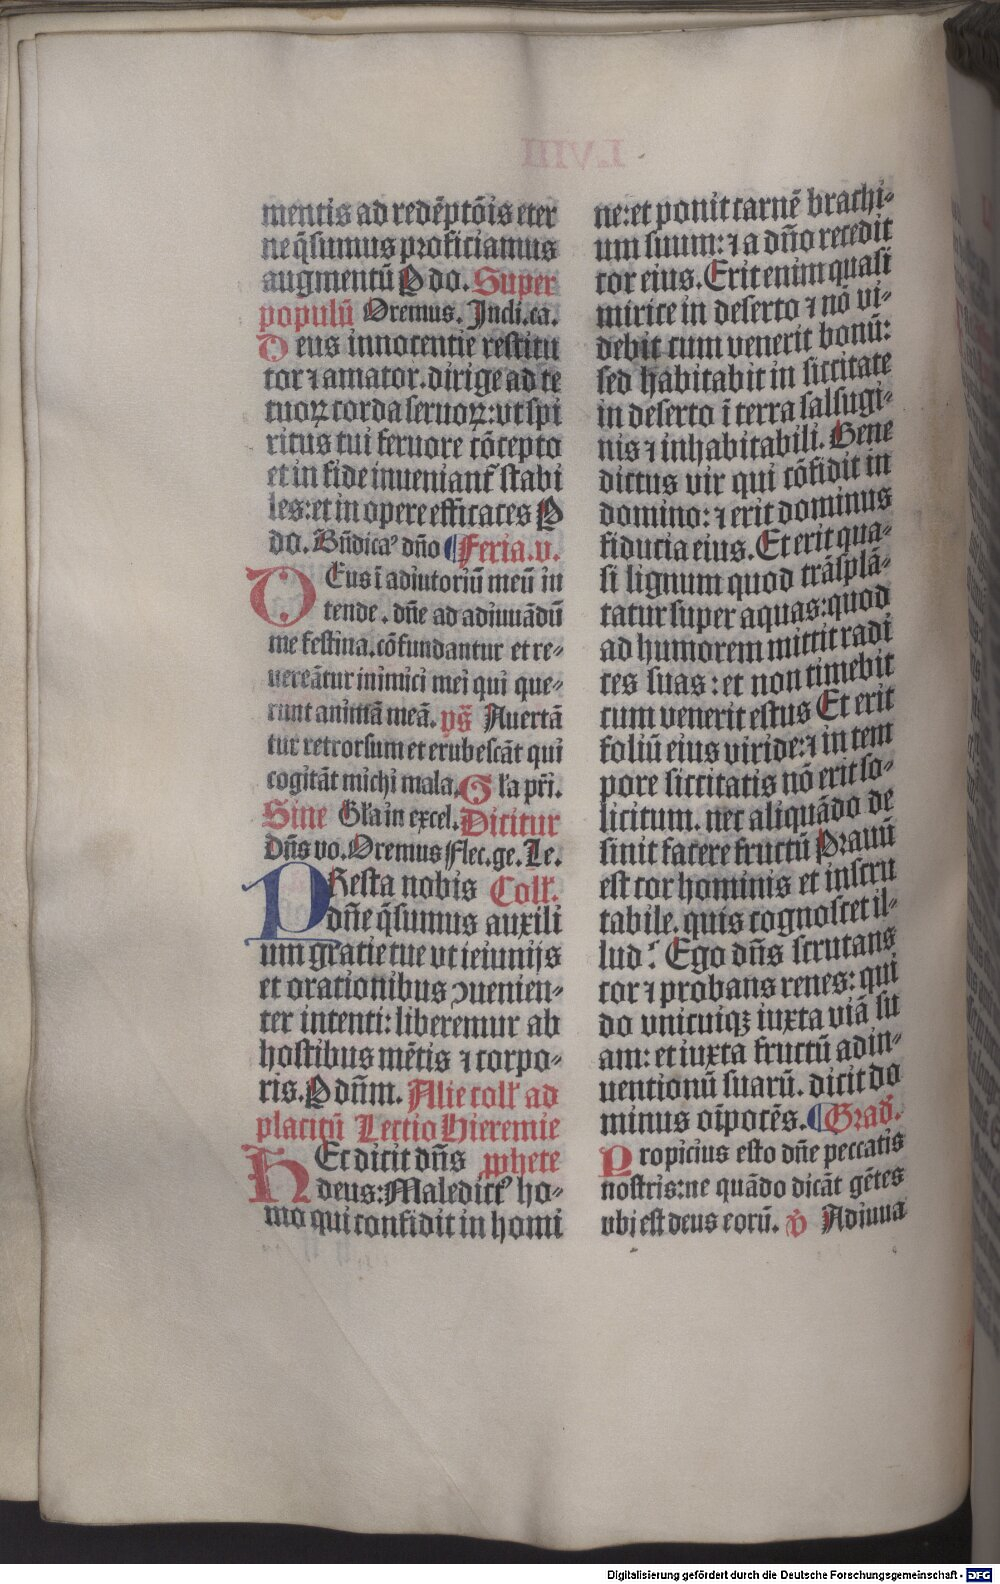 mentis ad redēptōis eter
ne q̄sumus proficiamus
augmentū P do. Super
populū Oremus. Incli.ca.
Deus innocentie restitu
tor ⁊ amator. dirige ad te
tuoꝝ corda seruoꝝ: vt spi
ritus tui feruore cōcepto
et in fide inueniant᷑ stabi
les: et in opere efficaces P
do. Bn̄dica⁹ dn̄o Feria. v.
DEus ī adiutoriū meū in
tende. dn̄e ad adiuuādū
me festina. cōfundantur et re⸗
uereātur inimici mei qui que⸗
runt animā meā. ps̄ Auertā
tur retrorsum et erubescāt qui
cogitāt michi mala. Gl'a pr̄i.
Sine Gl'a in excel. Dicitur
Dn̄s vo. Oremus Flec. ge. Le.
PResta nobis Coll'.
dn̄e q̄sumus auxili
um gratie tue vt ieiunijs
et orationibus ↄuenien⸗
ter intenti: liberemur ab
hostibus mētis ⁊ corpo⸗
ris. P dn̄m. Alie coll' ad
placitū Lectio Hieremie
HEc dicit dn̄s pphete
deus: Maledict⁹ ho⸗
mo qui confidit in homi
ne: et ponit carnē brachi⸗
um suum: ⁊ a dn̄o recedit
cor eius. Erit enim quasi
mirice in deserto ⁊ nō vi⸗
debit cum venerit bonū:
sed habitabit in siccitate
in deserto ī terra salsugi⸗
nis ⁊ inhabitabili. Bene
dictus vir qui cōfidit in
domino: ⁊ erit dominus
fiducia eius. Et erit qua⸗
si lignum quod trāsplā⸗
tatur super aquas: quod
ad humorem mittit radi
ces suas: et non timebit
cum venerit estus Et erit
foliū eius viride: ⁊ in tem
pore siccitatis nō erit so⸗
licitum. nec aliquādo de
sinit facere fructū Prauū
est cor hominis et inscru
tabile. quis cognoscet il⸗
lud? Ego dn̄s scrutans
cor ⁊ probans renes: qui
do vnicuiqꝫ iuxta viā su
am: et iuxta fructū adin⸗
uentionū suarū. dicit do
minus oīpotēs. Grad̄.
Propicius esto dn̄e peccatis
nostris: ne quādo dicāt gētes
vbi est deus eorū. v̄ Adiuua
LVIII
Digitalisierung gefördert durch die Deutsche Forschungsgemeinschaft - DFG